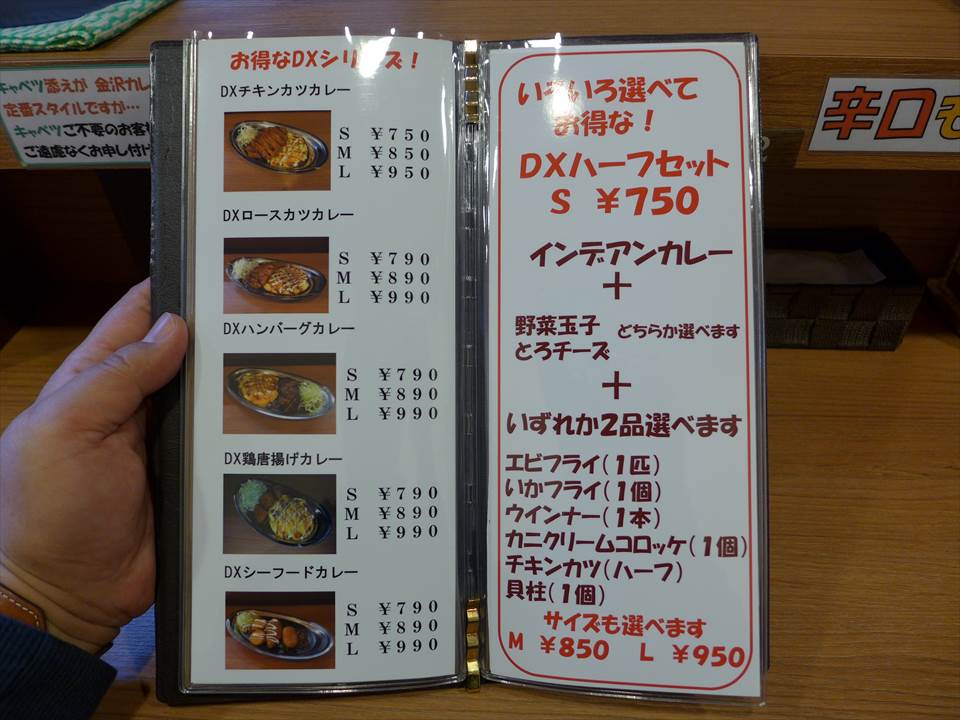 お得なDXシリーズ！
DXチキンカツカレー
S ￥750
M ￥850
L ￥950
DXロースカツカレー
S ￥790
M ￥890
L ￥990
DXハンバーグカレー
S ￥790
M ￥890
L ￥990
DX鶏唐揚げカレー
S ￥790
M ￥890
L ￥990
DXシーフードカレー
S ￥790
M ￥890
L ￥990
いろいろ選べて
お得な！
DXハーフセット
S ￥750
インデアンカレー
＋
野菜玉子 どちらか選べます
とろチーズ
＋
いずれか2品選べます
エビフライ（1匹）
いかフライ（1個）
ウインナー（1本）
カニクリームコロッケ（1個）
チキンカツ（ハーフ）
貝柱（1個）
サイズも選べます
M ￥850 L ￥950
キャベツ添えが 金沢カレ
定番スタイルですが…
キャベツご不要のお客
ご遠慮なくお申し付け
辛口も